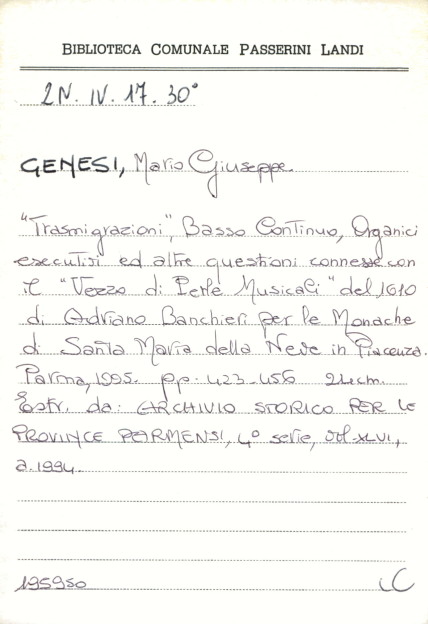 BIBLIOTECA COMUNALE PASSERINI LANDI
2N. IV. 17. 30°
GENESI, Mario Giuseppe.
"Trasmigrazioni", Basso Continuo, Organici
esecutivi ed altre questioni connesse con
il "Vezzo di Perle Musicali" del 1610
di Adriano Banchieri per le Monache
di Santa Maria della Neve in Piacenza.
Parma, 1995. pp. 423-456 24cm.
Estr. da: ARCHIVIO STORICO PER LE
PROVINCE PARMENSI, 4° serie, vol. XLVI,
a. 1994.
195950